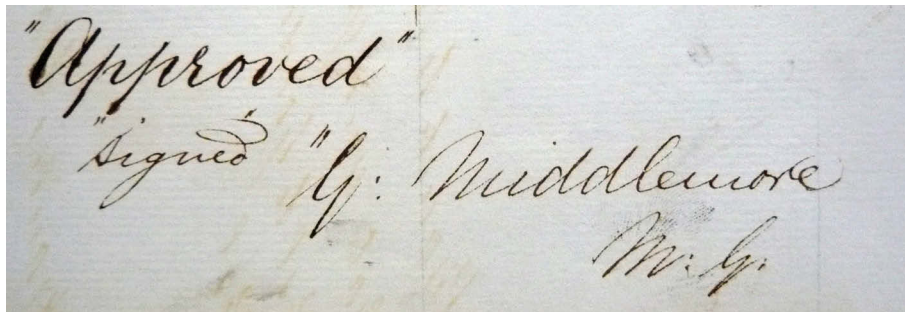 "Approved"
"signed" "G: Middlemore
M: G: